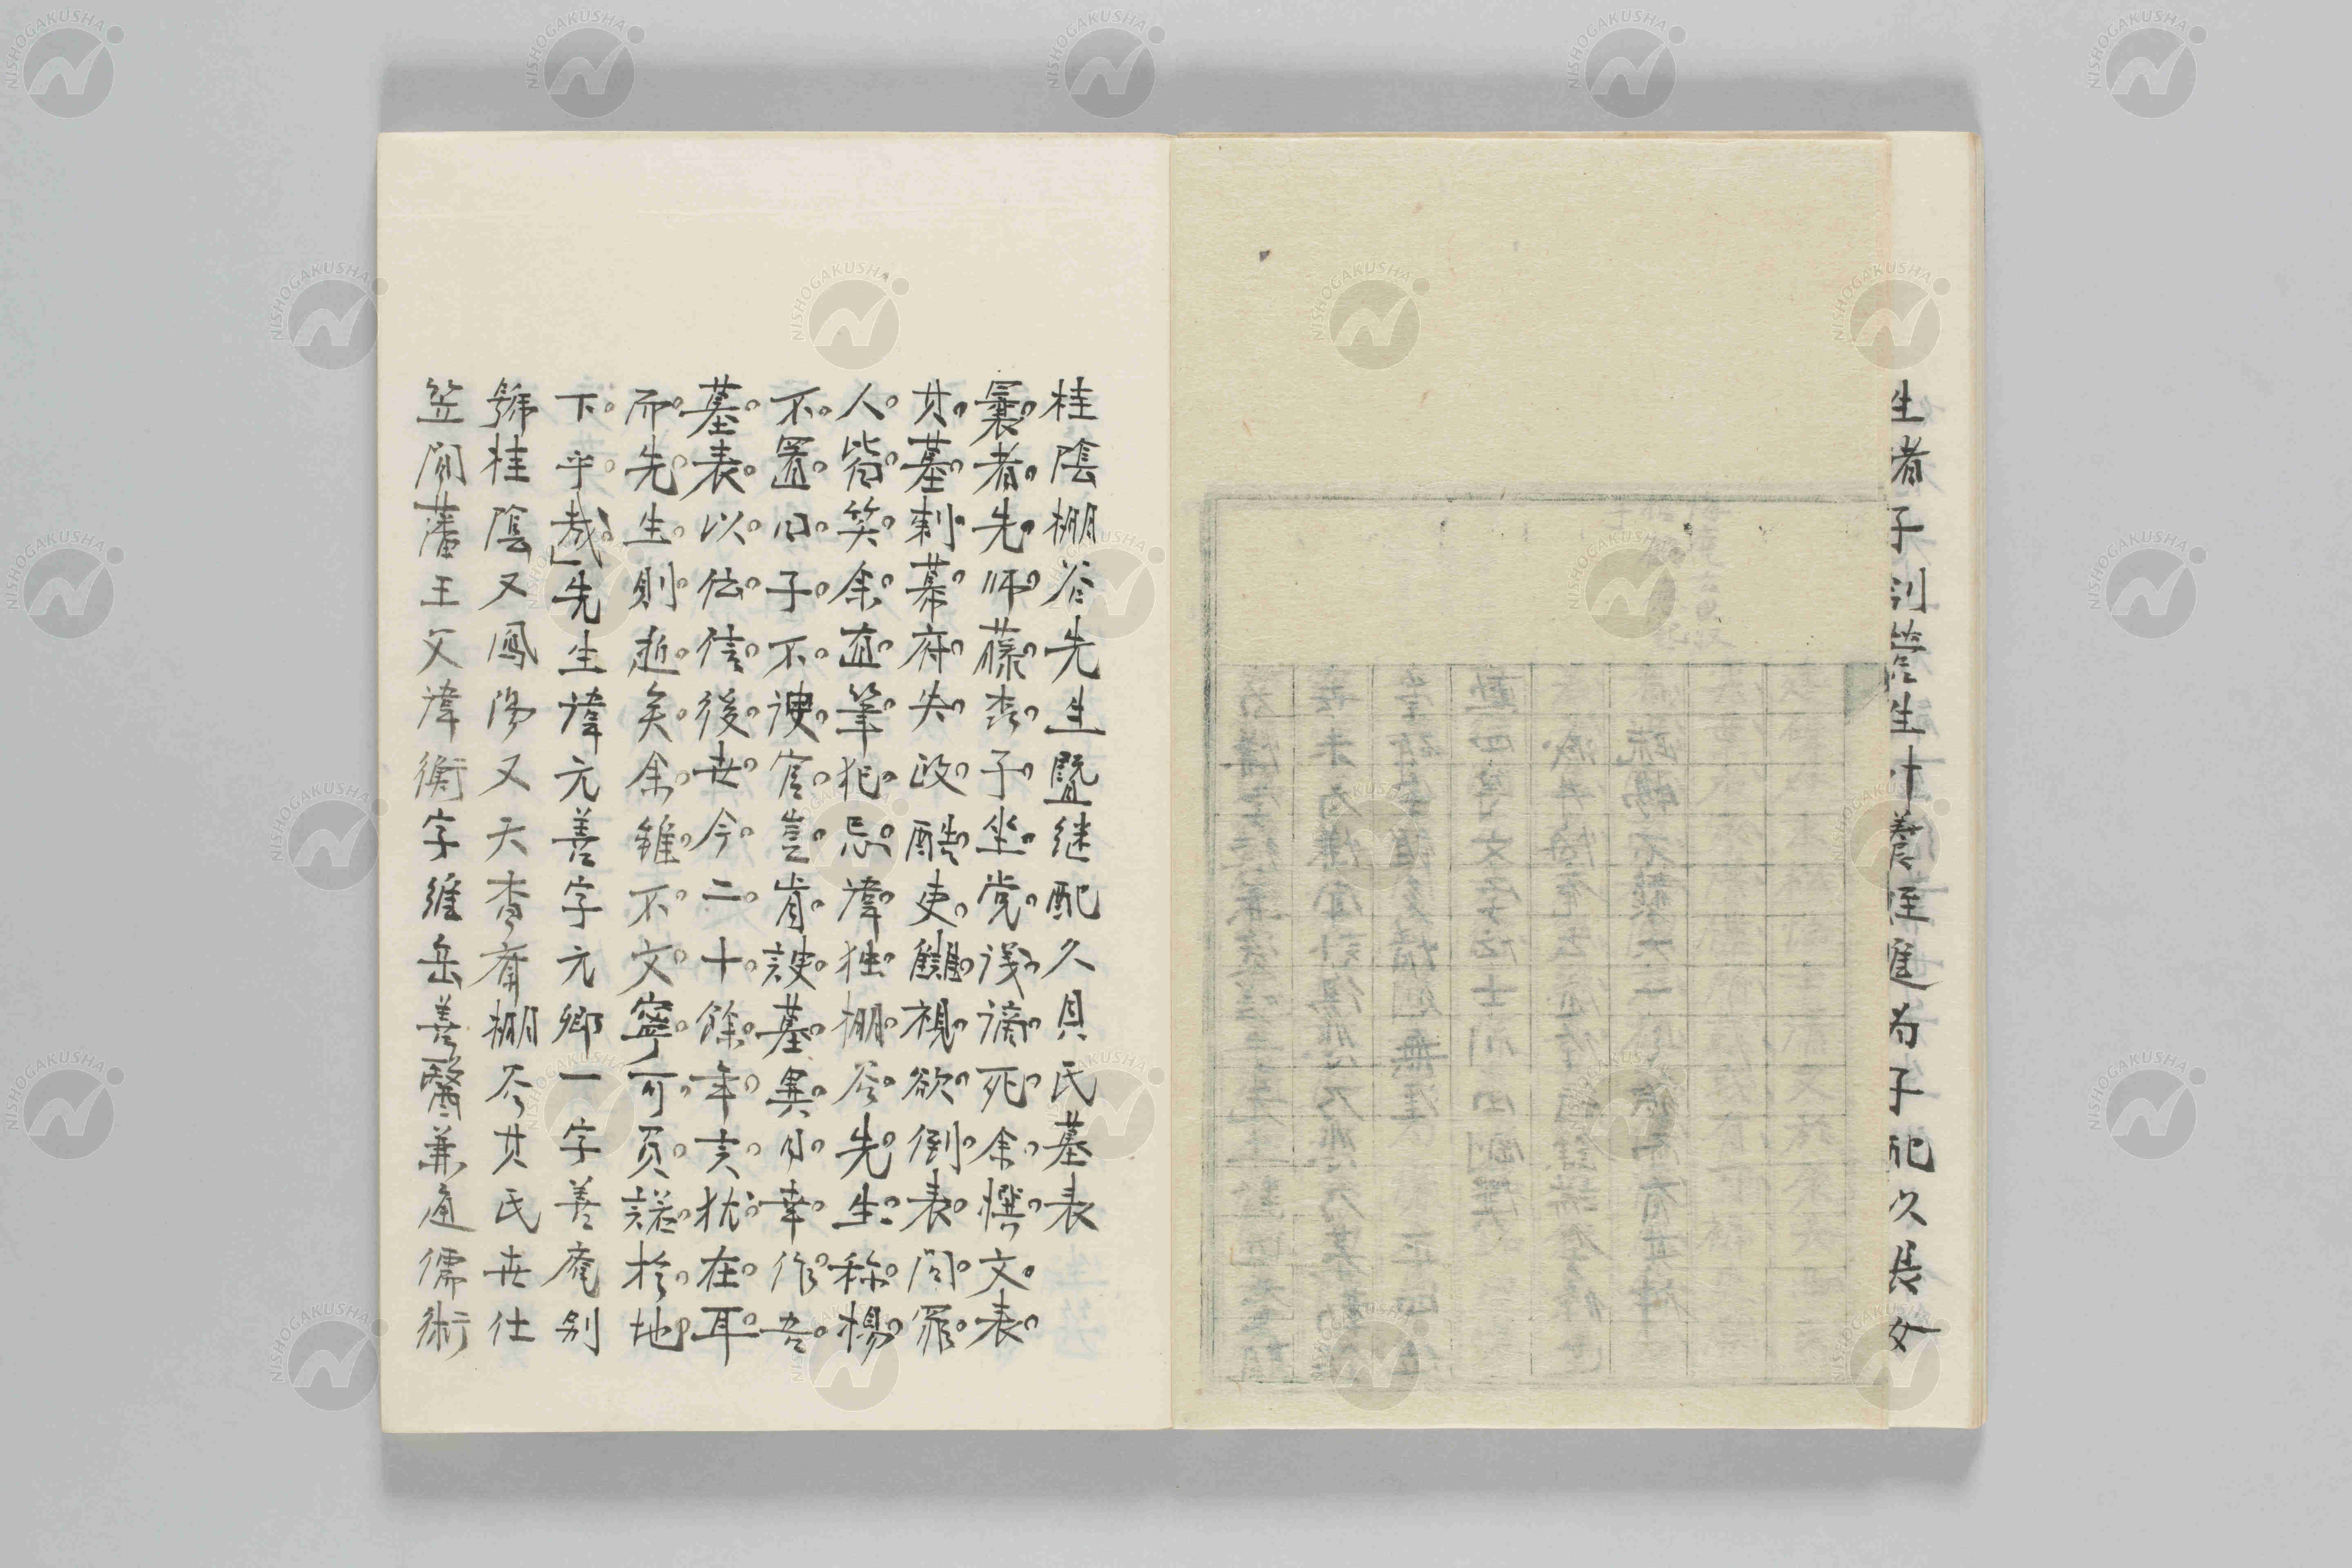 生者子則営生十養姪進為子配久長女
桂陰棚谷先生暨継配久貝氏墓表
曩者先師藤森子坐党議謫死余撰文表
其墓刺幕府失政酷吏讎視欲倒表問罪
人皆笑余直筆犯忌諱独棚谷先生称揚
不置曰子不諛官豈肯諛墓異日幸作吾
墓表以伝信後世今二十餘年言猶在耳
而先生則逝矣余雖不文寧可負諾於地
下乎哉先生諱元善字元卿一字善庵別
號桂陰又鳳陽又天香斎棚谷其氏世仕
笠間藩王父諱衡字維岳善醫兼通儒術
NISHOGAKUSHA